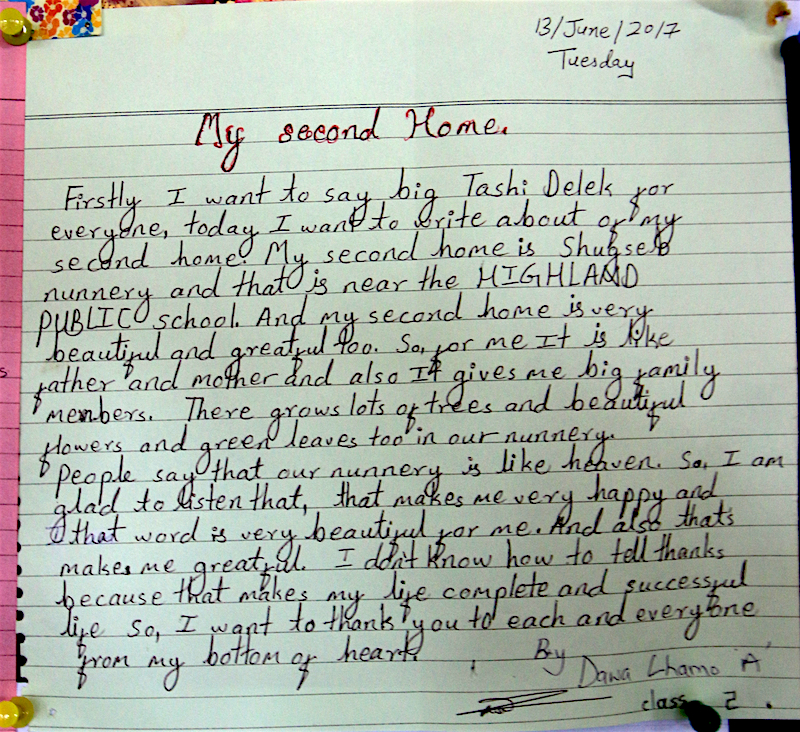 13/June/2017
Tuesday
My second Home.
Firstly I want to say big Tashi Delek for
everyone, today I want to write about of my
second home. My second home is Shugseb
nunnery and that is near the HIGHLAND
PUBLIC school. And my second home is very
beautiful and greatful too. So, for me It is like
father and mother and also It gives me big family
members. There grows lots of trees and beautiful
flowers and green leaves too in our nunnery.
People say that our nunnery is like heaven. So, I am
glad to listen that, that makes me very happy and
that word is very beautiful for me. And also that's
makes me greatful. I don't know how to tell thanks
because that makes my life complete and successful
life so, I want to thank you to each and everyone
from my bottom of heart.
By
Dawa Lhamo 'A'
class 2.